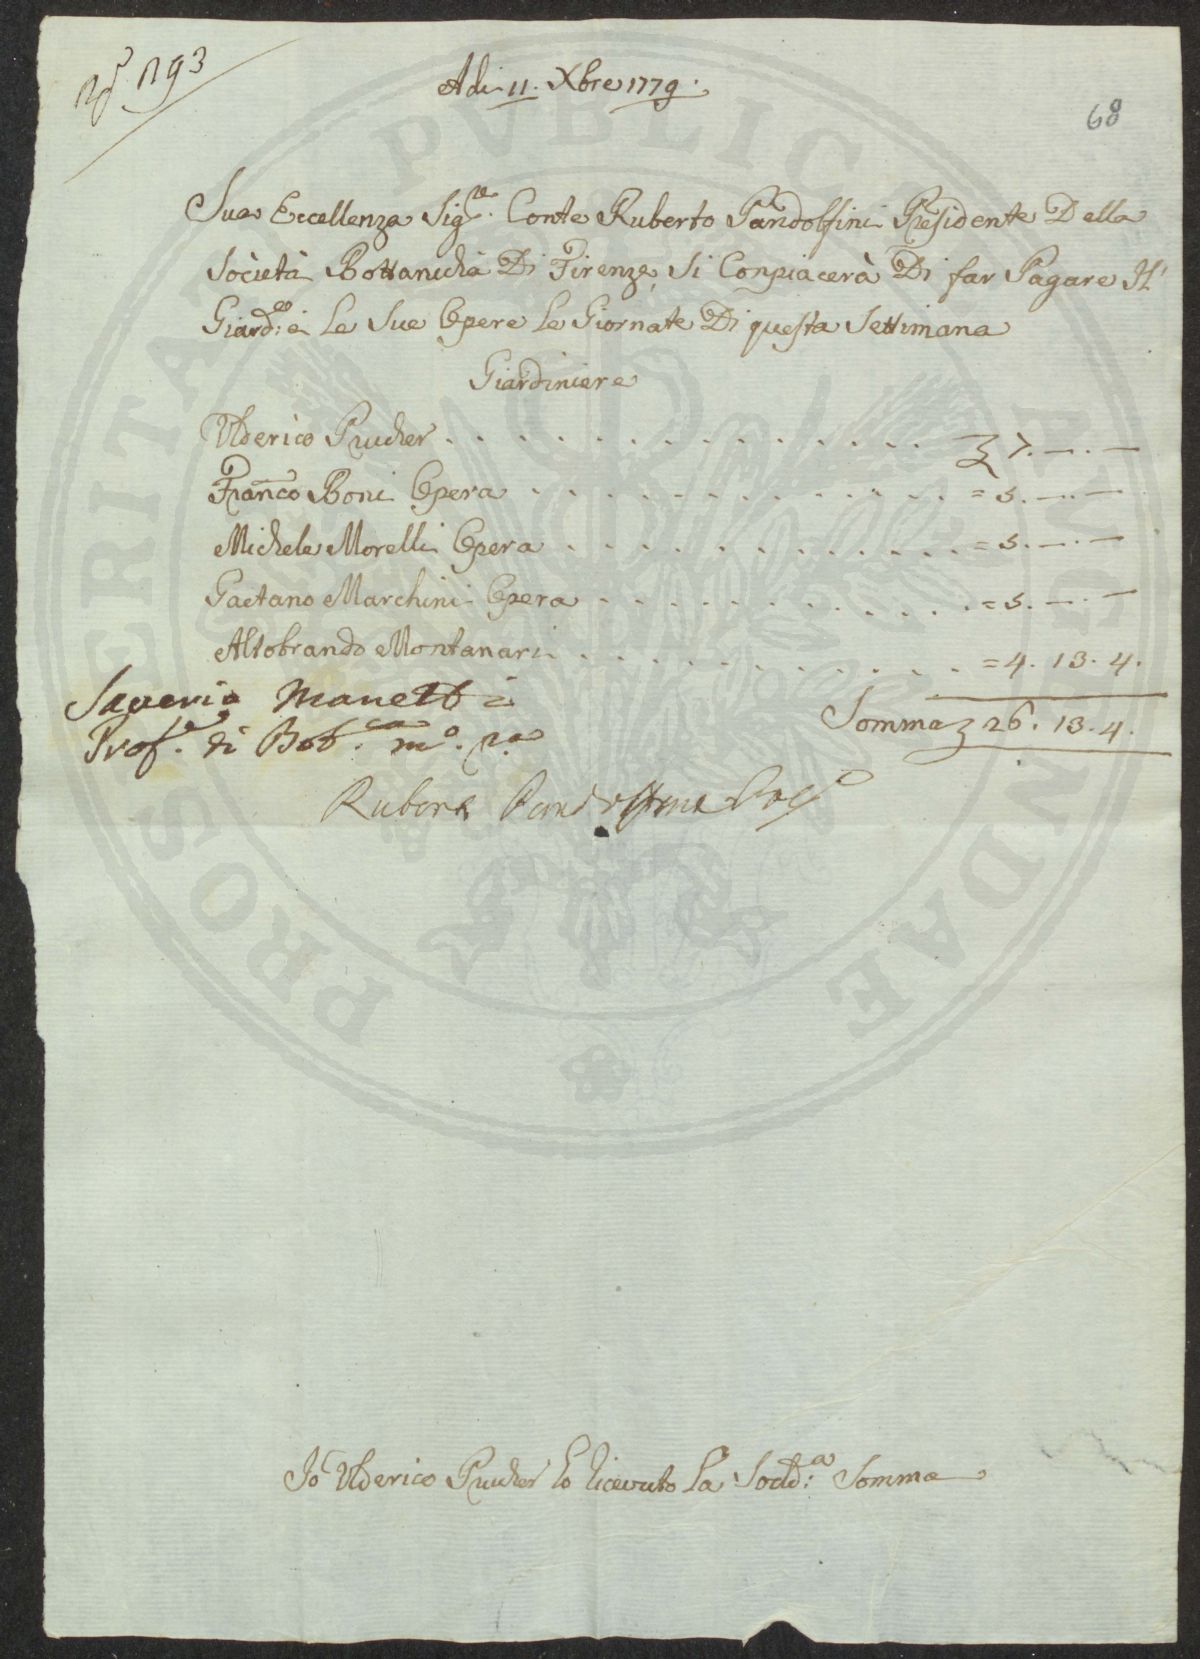 N.º 193
Adi 11. Xbre 1779.
68
Sua Eccellenza Sig.re Conte Ruberto Pandolfini Presidente Della
Società Bottanicha Di Firenze, Si Conpiacerà Di far Pagare Il
Giard:eo è Le Sue Opere Le Giornate Di questa Settimana
Giardiniere
Ulderico Prucher . . . . . . . . . . . . . . . 7. —. —
Franco Boni Opera . . . . . . . . . . . . . = 5. —. —
Michele Morelli Opera . . . . . . . . . . . . = 5. —. —
Gaetano Marchini Opera . . . . . . . . . . . = 5. —. —
Altobrando Montanari . . . . . . . . . . . . = 4. 13. 4.
Somma 26. 13. 4.
Saverio Manetti
Prof.e di Bot.ca m.o p.a
Ruberto Pandolfini
Io Ulderico Prucher ho riceuto La Sodd:a Somma
PROSPERITATI PVBLICAE AVGENDAE